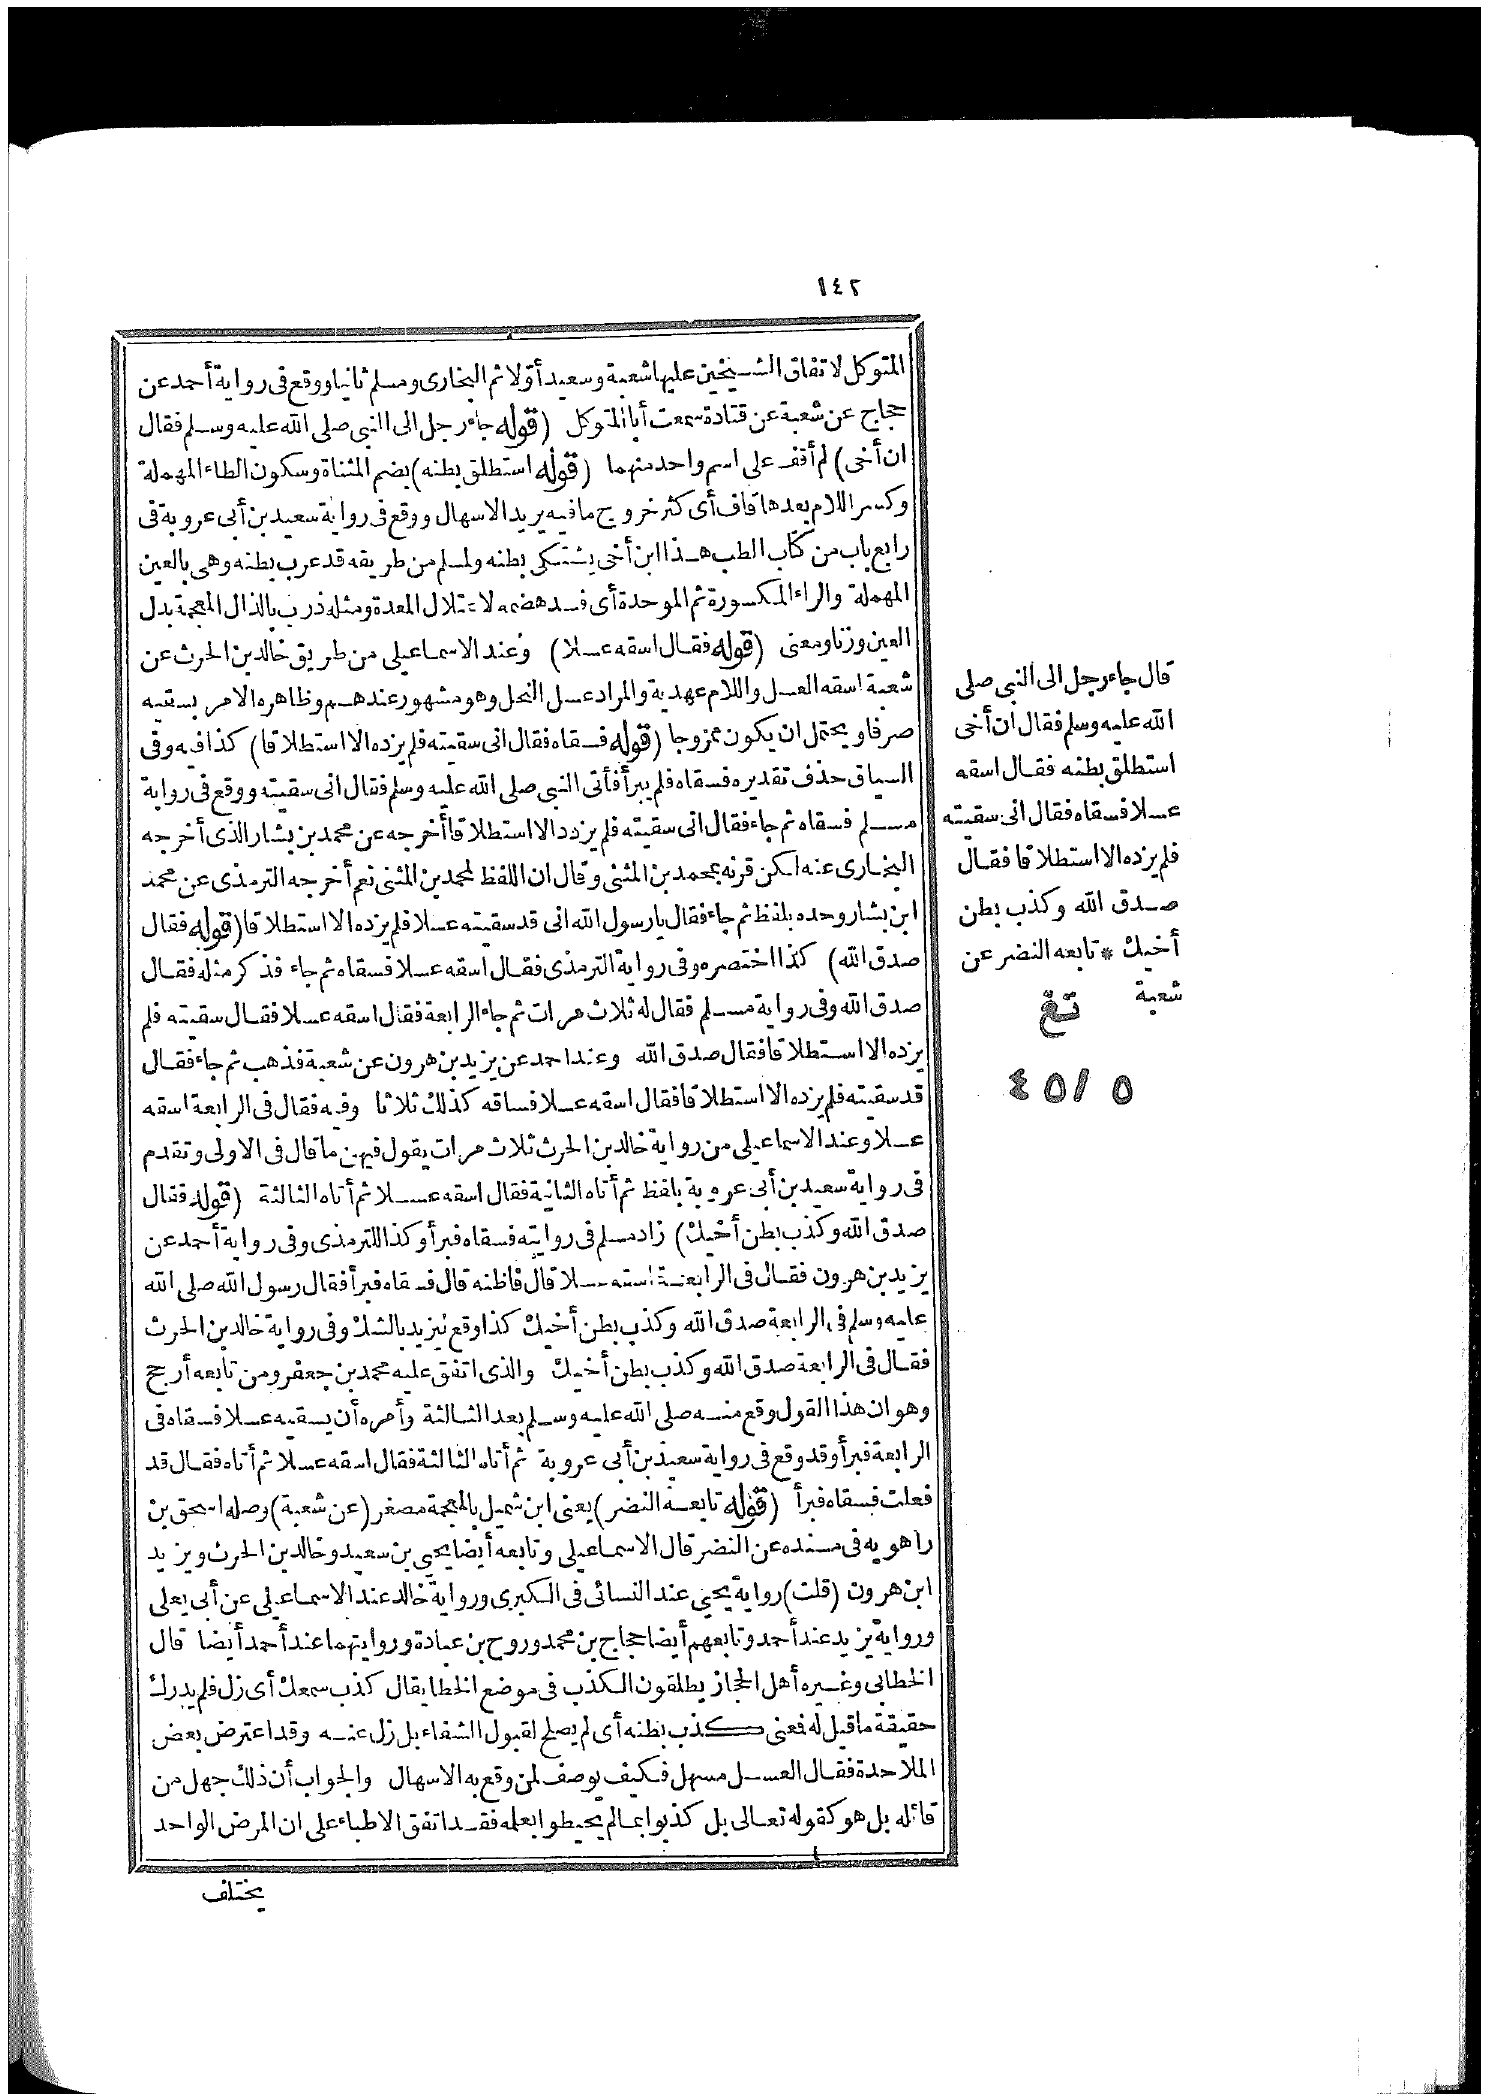 ١٤٢
المتوكل لاتفاق الشيخين عليها شعبة وسعيد أولا ثم البخارى ومسلم ثانيا ووقع فى رواية أحمد عن
حجاج عن شعبة عن قتادة سمعت أبا المتوكل (قوله جاء رجل الى النبى صلى الله عليه وسلم فقال
ان أخى) لم أقف على اسم واحد منهما (قوله استطلق بطنه) بضم المثناة وسكون الطاء المهملة
وكسر اللام بعدها قاف أى كثر خروج ما فيه يريد الاسهال ووقع فى رواية سعيد بن أبى عروبة فى
رابع باب من كتاب الطب هذا ابن أخى يشتكى بطنه ولمسلم من طريقه قد عرب بطنه وهى بالعين
المهملة والراء المكسورة ثم الموحدة أى فسد هضمه لاعتلال المعدة ومثله ذرب بالذال المعجمة بدل
العين وزنا ومعنى (قوله فقال اسقه عسلا) وعند الاسماعيلى من طريق خالد بن الحرث عن
شعبة اسقه العسل واللام عهدية والمراد عسل النحل وهو مشهور عندهم وظاهره الامر بسقيه
صرفا ويحتمل ان يكون ممزوجا (قوله فسقاه فقال انى سقيته فلم يزده الا استطلاقا) كذا فيه وفى
السياق حذف تقديره فسقاه فلم يبرأ فأتى النبى صلى الله عليه وسلم فقال انى سقيته ووقع فى رواية
مسلم فسقاه ثم جاء فقال انى سقيته فلم يزدد الا استطلاقا أخرجه عن محمد بن بشار الذى أخرجه
البخارى عنه لكن قرنه بمحمد بن المثنى وقال ان اللفظ لمحمد بن المثنى نعم أخرجه الترمذى عن محمد
ابن بشار وحده بلفظ ثم جاء فقال يا رسول الله انى قد سقيته عسلا فلم يزده الا استطلاقا (قوله فقال
صدق الله) كذا اختصره وفى رواية الترمذى فقال اسقه عسلا فسقاه ثم جاء فذكر مثله فقال
صدق الله وفى رواية مسلم فقال له ثلاث مرات ثم جاء الرابعة فقال اسقه عسلا فقال سقيته فلم
يزده الا استطلاقا فقال صدق الله وعند احمد عن يزيد بن هرون عن شعبة فذهب ثم جاء فقال
قد سقيته فلم يزده الا استطلاقا فقال اسقه عسلا فساقه كذلك ثلاثا وفيه فقال فى الرابعة اسقه
عسلا وعند الاسماعيلى من رواية خالد بن الحرث ثلاث مرات يقول فيهن ما قال فى الاولى وتقدم
فى رواية سعيد بن أبى عروبة بلفظ ثم أتاه الثانية فقال اسقه عسلا ثم أتاه الثالثة (قوله فقال
صدق الله وكذب بطن أخيك) زاد مسلم فى روايته فسقاه فبرأ وكذا للترمذى وفى رواية أحمد عن
يزيد بن هرون فقال فى الرابعة اسقه عسلا قال فاظنه قال فسقاه فبرأ فقال رسول الله صلى الله
عليه وسلم فى الرابعة صدق الله وكذب بطن أخيك كذا وقع ليزيد بالشك وفى رواية خالد بن الحرث
فقال فى الرابعة صدق الله وكذب بطن أخيك والذى اتفق عليه محمد بن جعفر ومن تابعه أرجح
وهو ان هذا القول وقع منه صلى الله عليه وسلم بعد الثالثة وأمره أن يسقيه عسلا فسقاه فى
الرابعة فبرأ وقد وقع فى رواية سعيد بن أبى عروبة ثم أتاه الثالثة فقال اسقه عسلا ثم أتاه فقال قد
فعلت فسقاه فبرأ (قوله تابعه النضر) يعنى ابن شميل بالمعجمة مصغر (عن شعبة) وصله اسحق بن
راهويه فى مسنده عن النضر قال الاسماعيلى وتابعه أيضا يحيى بن سعيد وخالد بن الحرث ويزيد
ابن هرون (قلت) رواية يحيى عند النسائى فى الكبرى ورواية خالد عند الاسماعيلى عن أبى يعلى
ورواية يزيد عند أحمد وتابعهم أيضا حجاج بن محمد وروح بن عبادة وروايتهما عند أحمد أيضا قال
الخطابى وغيره أهل الحجاز يطلقون الكذب فى موضع الخطا يقال كذب سمعك أى زل فلم يدرك
حقيقة ما قيل له فمعنى كذب بطنه أى لم يصلح لقبول الشفاء بل زل عنه وقد اعترض بعض
الملاحدة فقال العسل مسهل فكيف يوصف لمن وقع به الاسهال والجواب أن ذلك جهل من
قائله بل هو كقوله تعالى بل كذبوا بما لم يحيطوا بعلمه فقد اتفق الاطباء على ان المرض الواحد
يختلف
قال جاء رجل الى النبى صلى
الله عليه وسلم فقال ان أخى
استطلق بطنه فقال اسقه
عسلا فسقاه فقال انى سقيته
فلم يزده الا استطلاقا فقال
صدق الله وكذب بطن
أخيك * تابعه النضر عن
شعبة
تغ
٤٥/٥